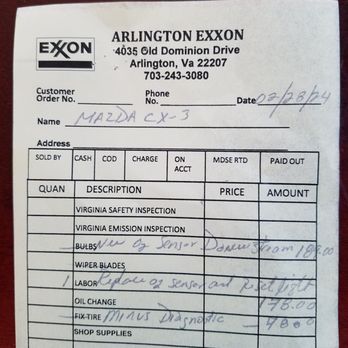 EXXON
ARLINGTON EXXON
4035 Old Dominion Drive
Arlington, Va 22207
703-243-3080
Customer Order No. Phone No. Date 02/28/24
Name MAZDA CX-3
Address
SOLD BY CASH COD CHARGE ON ACCT MDSE RTD PAID OUT
QUAN DESCRIPTION PRICE AMOUNT
VIRGINIA SAFETY INSPECTION
VIRGINIA EMISSION INSPECTION
BULBS New O2 Sensor Downstream 189.00
WIPER BLADES
1 LABOR Replace O2 sensor and reset light
OIL CHANGE 178.00
FIX-TIRE Minus Diagnostic - 48.00
SHOP SUPPLIES